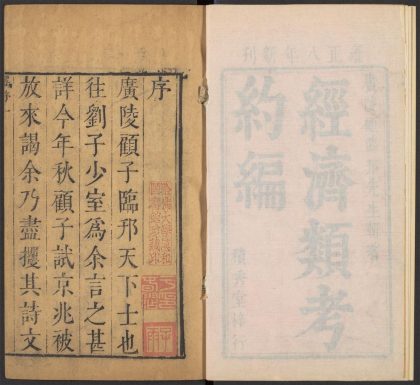 雍正八年新刊
經濟類考
約編
秀堂梓行
序
廣陵顧子臨邗天下士也
往劉子少室爲余言之甚
詳今年秋顧子試京兆被
放來謁余乃盡攫其詩文